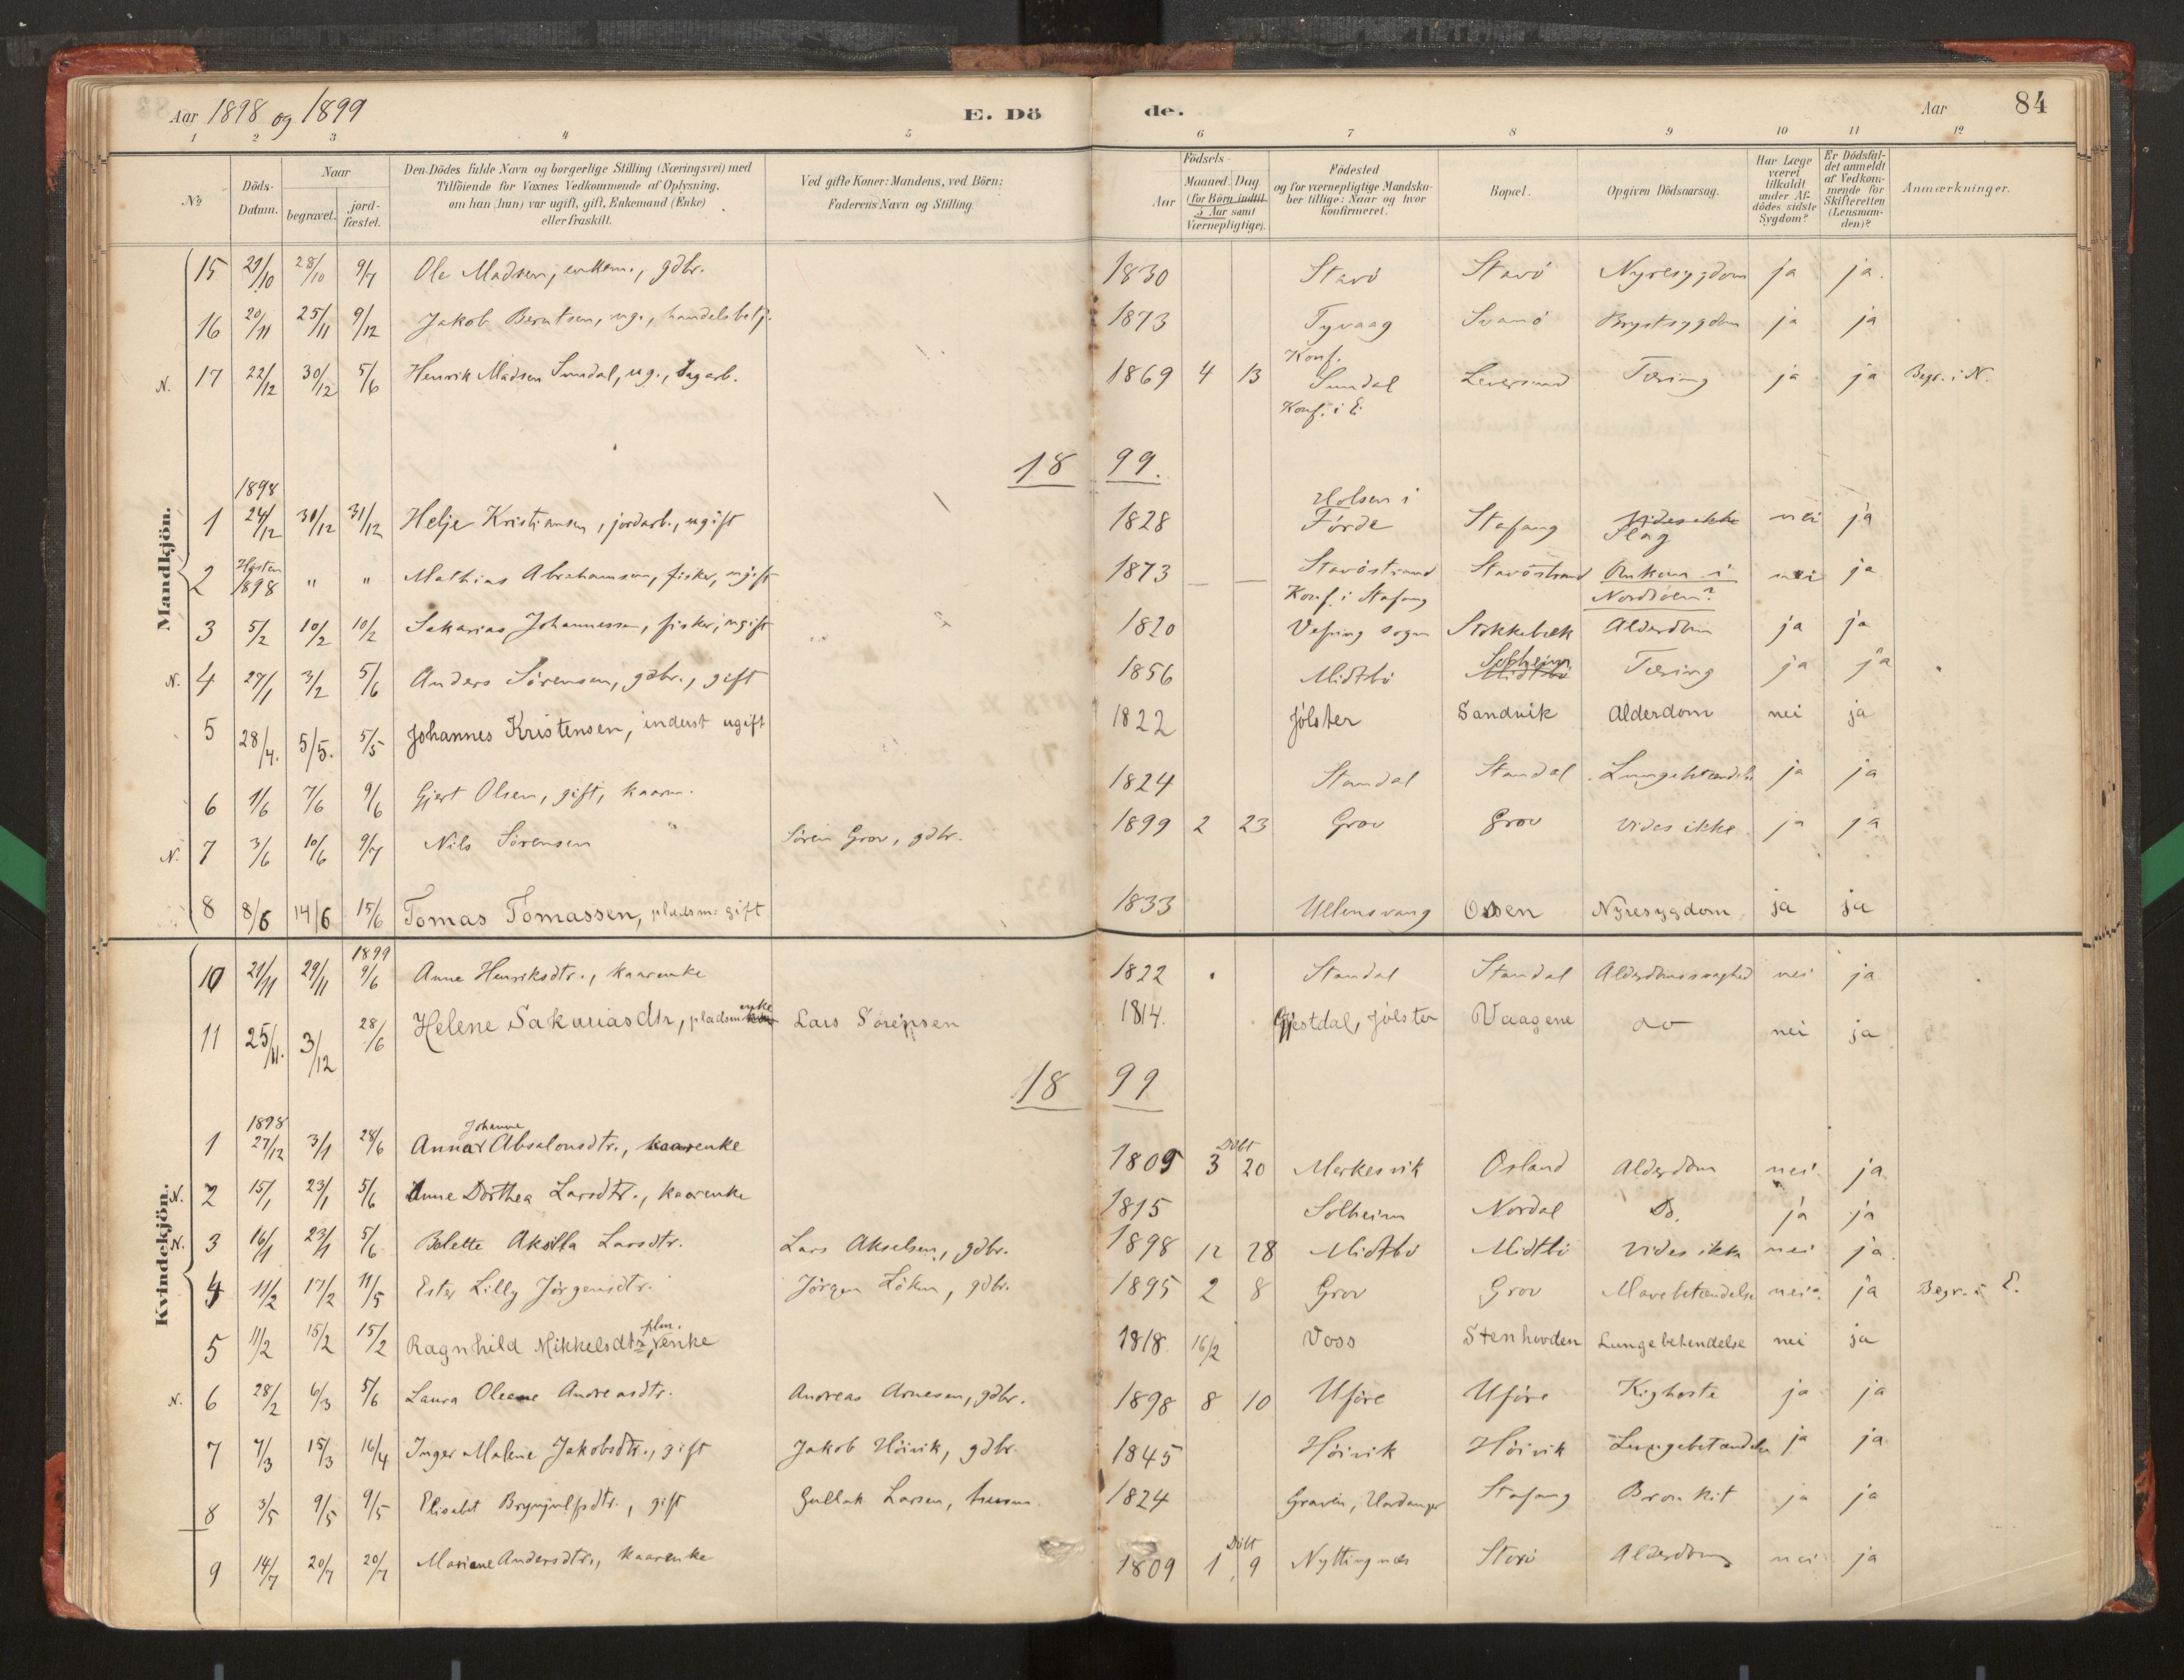 Aar 1898 og 1899 E. Dö de. Aar 84
1 2 3 4 5 6 7 8 9 10 11 12
No
Döds-Datum.
Naar
begravet.
jord-fæstet.
Den Dödes fulde Navn og borgerlige Stilling (Næringsvei) med
Tilföiende for Voxnes Vedkommende af Oplysning,
om han (hun) var ugift, gift, Enkemand (Enke)
eller fraskilt.
Ved gifte Koner: Mandens, ved Börn:
Faderens Navn og Stilling.
Födsels-
Aar
Maaned. Dag
(for Börn indtil
5 Aar samt
Værnepligtige).
Födested
og for værnepligtige Mandska-
ber tillige: Naar og hvor
konfirmeret.
Bopæl.
Opgiven Dödsaarsag.
Har Læge
været
tilkaldt
under Af-
dödes sidste
Sygdom?
Er Dödsfal-
det anmeldt
af Vedkom-
mende for
Skifteretten
(Lensman-
den)?
Anmærkninger.
Mandkjön.
15 /10 28/10 9/7 Ole Madsen, enkem., gdbr. 1830 Stavö Stavö Nyresygdom ja ja.
16 20/11 25/11 9/12 Jakob Berntsen, ug., handelsbetj. 1873 Tyvaag Svanö Brystsygdom ja ja
Konf.
N. 17 22/12 30/12 5/6 Henrik Madsen Sundal, ug., dagarb. 1869 4 13 Sundal Leversund Tæring ja ja Begr. i N.
Konf. i E.
18 99.
1898
Holsen i
1 24/12 30/12 31/12 Helje Kristiansen, jordarb., ugift 1828 Förde Stafang Vides ikke nei ja
Slag
2 Hösten 1898 " " Mathias Abrahamsen, fisker, ugift 1873 — — Stavöstrand Stavöstrand Omkom i nei ja
Konf. i Stafang Nordsöen?
3 5/2 10/2 10/2 Sakarias Johannessen, fisker, ugift 1820 Vefring sogn Stokkebæk Alderdom ja ja
Solheim
N. 4 27/1 3/2 5/6 Anders Sörensen, gdbr., gift 1856 Midtbö Midtbö Tæring ja ja
5 28/4. 5/5. 5/5 Johannes Kristensen, inderst ugift 1822 Jölster Sandvik Alderdom nei ja
6 1/6 7/6 9/6 Gjert Olsen, gift, kaarm. 1824 Standal Standal Lungebetændelse ja ja
N. 7 3/6 10/6 9/7 Nils Sörensen Sören Grov, gdbr. 1899 2 23 Grov Grov Vides ikke ja ja
8 8/6 14/6 15/6 Tomas Tomassen, pladsm: gift 1833 Ullensvang Ossen Nyresygdom ja ja
Kvindekjön.
1899
10 21/11 29/11 9/6 Anne Henriksdtr., kaarenke 1822 Standal Standal Alderdomssvaghed nei ja
enke
11 25/11. 3/12 28/6 Helene Sakariasdtr, pladsm Lars Sörensen 1814. Gjestdal, Jölster Vaagene do nei ja
18 99
1898
Johanne
Döbt
1 27/12 3/1 28/6 Anna Absalonsdtr., kaarenke 1809 3 20 Merkesvik Osland Alderdom nei ja
N. 2 15/1 23/1 5/6 Anne Dorthea Larsdtr., kaarenke 1815 Solheim Nordal Do. ja ja
N. 3 16/1 23/1 5/6 Bolette Aksilla Larsdtr. Lars Akselsen, gdbr. 1898 12 28 Midtbö Midtbö Vides ikke nei ja
4 11/2 17/2 11/5 Ester Lilly Jörgensdtr. Jörgen Löken, gdbr. 1895 2 8 Grov Grov Mavebetændelse nei ja Begr. i E.
plm.
5 11/2 15/2 15/2 Ragnhild Mikkelsdtr, enke 1818. 16/2 Voss Stenhovden Lungebetendelse nei ja
N. 6 28/2 6/3 5/6 Laura Oleane Andreasdtr. Andreas Arnesen, gdbr. 1898 8 10 Uföre Uföre Kighoste ja ja
7 7/3 15/3 16/4 Inger Malene Jakobsdtr., gift Jakob Höivik, gdbr. 1845 Höivik Höivik Lungebetændelse ja ja
8 3/5 9/5 9/5 Elisabet Brynjulfsdtr., gift Gullak Larsen, husm. 1824 Gravin, Hardanger Stafang Bronkit ja ja
Döbt
9 14/7 20/7 20/7 Mariane Andersdtr., kaarenke 1809 1 9 Nyttingnes Storö Alderdom nei ja